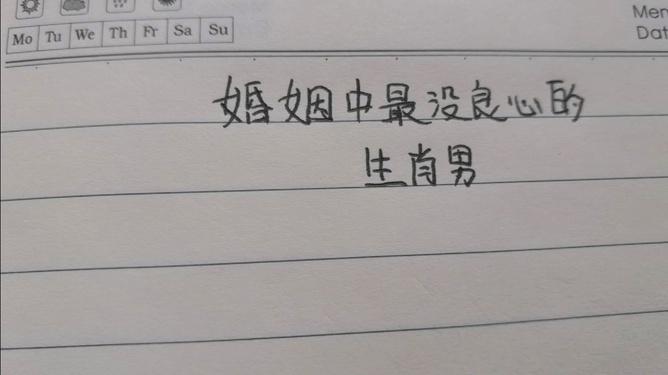 Mo Tu We Th Fr Sa Su
婚姻中最没良心的
生肖男